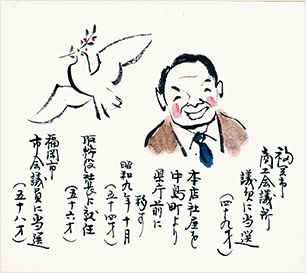 福岡市
商工会議所
議員に当選
(四十九才)
本店社屋を
中島町より
県庁前に
移す
昭和九年十月
(五十四才)
取締役社長に就任
(五十六才)
福岡市
市会議員に当選
(五十八才)